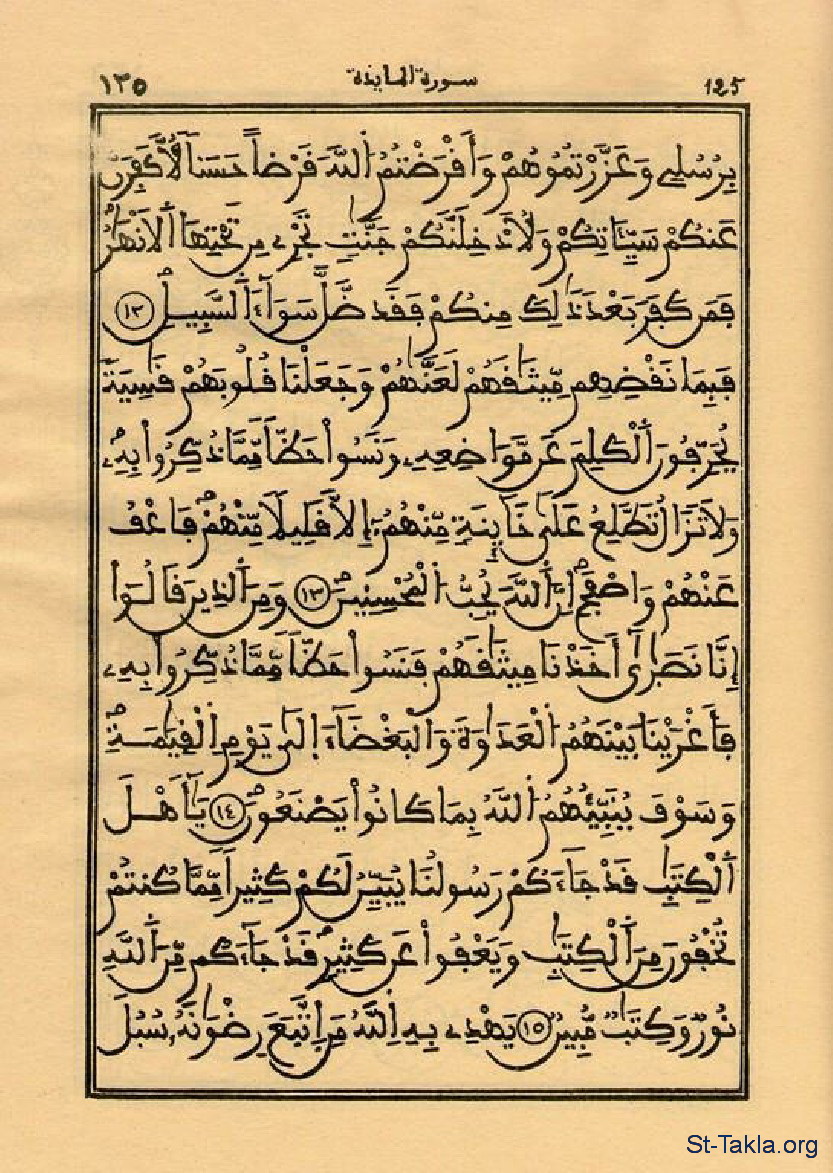 125 سورة المايدة ١٢٥
بِرُسُلِي وَعَزَّرْتُمُوهُمْ وَأَقْرَضْتُمُ اللَّهَ قَرْضاً حَسَناً لَّأُكَفِّرَنَّ
عَنكُمْ سَيِّـَٔاتِكُمْ وَلَأُدْخِلَنَّكُمْ جَنَّٰتٍ تَجْرِے مِن تَحْتِهَا اَلَانْهَٰرُ
فَمَن كَفَرَ بَعْدَ ذَٰلِكَ مِنكُمْ فَقَد ضَّلَّ سَوَآءَ اَلسَّبِيلِ ١٢
فَبِمَا نَقْضِهِم مِّيثَٰقَهُمْ لَعَنَّٰهُمْ وَجَعَلْنَا قُلُوبَهُمْ قَٰسِيَةً
يُحَرِّفُونَ اَلْكَلِمَ عَن مَّوَاضِعِهِۦ وَنَسُواْ حَظّاً مِّمَّا ذُكِّرُواْ بِهِۦ
وَلَا تَزَالُ تَطَّلِعُ عَلَىٰ خَآئِنَةٍ مِّنْهُمُۥٓ إِلَّا قَلِيلًا مِّنْهُمْ فَاعْفُ
عَنْهُمْ وَاصْفَحِ اِنَّ اَللَّهَ يُحِبُّ اُلْمُحْسِنِينَ ١٣ وَمِنَ اَلذِينَ قَالُوٓاْ
إِنَّا نَصَٰرَىٰٓ أَخَذْنَا مِيثَٰقَهُمْ فَنَسُواْ حَظّاً مِّمَّا ذُكِّرُواْ بِهِۦ
فَأَغْرَيْنَا بَيْنَهُمُ اُلْعَدَٰوَةَ وَالْبَغْضَآءَ إِلَىٰ يَوْمِ اِلْقِيَٰمَةِ
وَسَوْفَ يُنَبِّئُهُمُ اُللَّهُ بِمَا كَانُواْ يَصْنَعُونَ ١٤ يَٰٓأَهْلَ
اَلْكِتَٰبِ قَدْ جَآءَكُمْ رَسُولُنَا يُبَيِّنُ لَكُمْ كَثِيراً مِّمَّا كُنتُمْ
تُخْفُونَ مِنَ اَلْكِتَٰبِ وَيَعْفُواْ عَن كَثِيرٍ قَدْ جَآءَكُم مِّنَ اَللَّهِ
نُورٌ وَكِتَٰبٌ مُّبِينٌ ١٥ يَهْدِے بِهِ اِللَّهُ مَنِ اِتَّبَعَ رِضْوَٰنَهُۥ سُبُلَ
St-Takla.org